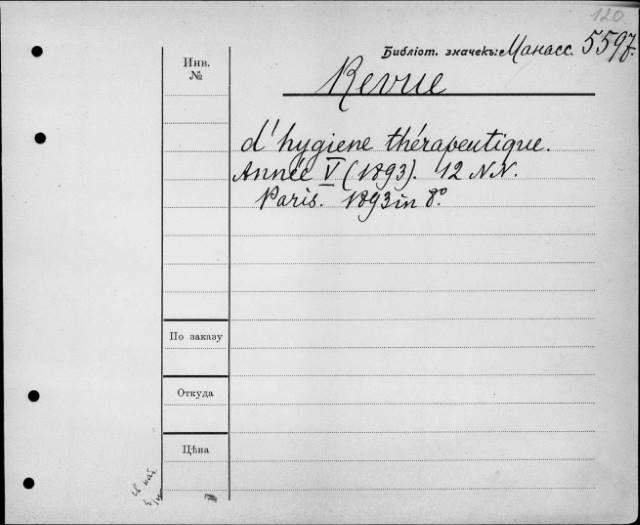 120
Библіот. значекъ: Манасс. 5597.
Инв.
№
Revue
d'hygiene thérapeutique.
Année V (1893). 12 NN.
Paris. 1893 in 8°.
По заказу
Откуда
Цѣна